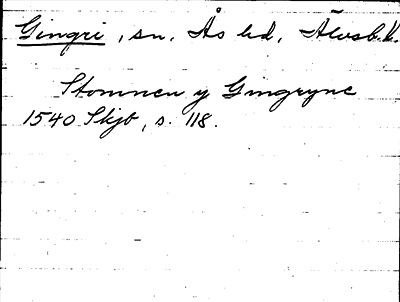 Gingri, sn, Ås hd, Älvsb.l.
Stommen y Gingryne
1540 Skjb, s. 118.